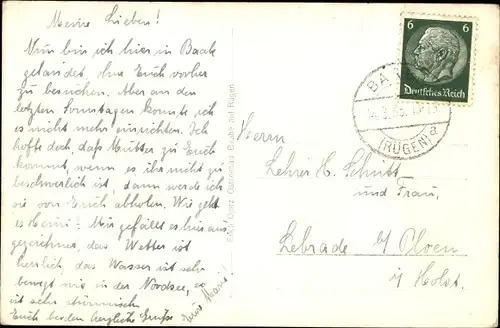 Meine Lieben!
Nun bin ich hier in Baabe
gelandet, ohne Euch vorher
zu besuchen. Aber an den
letzten Sonntagen konnte ich
es nicht mehr einrichten. Ich
hoffe doch, daß Mutter zu Euch
kommt, wenn es ihr nicht zu
beschwerlich ist, dann werde ich
sie von Euch abholen. Wie geht
es Heini? Mir gefällt es hier aus-
gezeichnet, das Wetter ist
herrlich, das Wasser ist sehr
bewegt wie in der Nordsee, es
ist sehr stürmisch
Euch beiden herzliche Grüße
Eure Marie!
Baabe auf Rügen
6 6
Deutsches Reich
BA
(RÜGEN) a
Herrn
Lehrer H. Schütt
und Frau,
Lebrade b/ Ploen
i/ Holst.